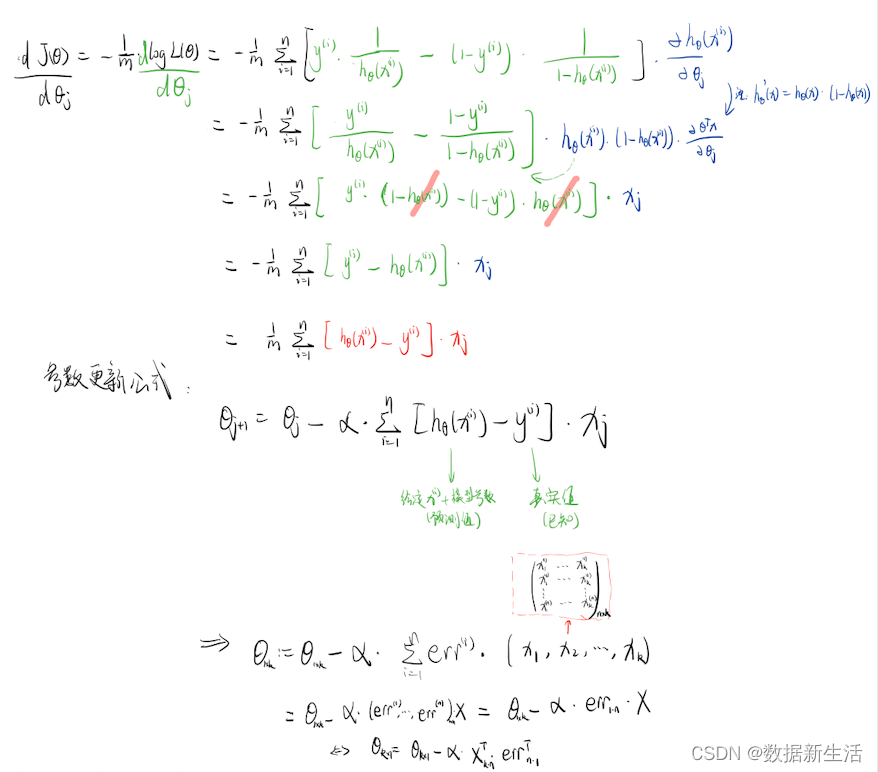 d J(θ)/dθj = -1/m · d log L(θ)/dθj = -1/m Σ_{i=1}^{n} [ y⁽ⁱ⁾ · 1/hθ(x⁽ⁱ⁾) - (1-y⁽ⁱ⁾) · 1/(1-hθ(x⁽ⁱ⁾)) ] · ∂hθ(x⁽ⁱ⁾)/∂θj
注: hθ'(x) = hθ(x) · (1-hθ(x))
= -1/m Σ_{i=1}^{n} [ y⁽ⁱ⁾/hθ(x⁽ⁱ⁾) - (1-y⁽ⁱ⁾)/(1-hθ(x⁽ⁱ⁾)) ] · hθ(x⁽ⁱ⁾) · (1-hθ(x⁽ⁱ⁾)) · ∂θᵀx/∂θj
= -1/m Σ_{i=1}^{n} [ y⁽ⁱ⁾ · (1-hθ(x⁽ⁱ⁾)) - (1-y⁽ⁱ⁾) · hθ(x⁽ⁱ⁾) ] · xj
= -1/m Σ_{i=1}^{n} [ y⁽ⁱ⁾ - hθ(x⁽ⁱ⁾) ] · xj
= 1/m Σ_{i=1}^{n} [ hθ(x⁽ⁱ⁾) - y⁽ⁱ⁾ ] · xj
参数更新公式:
θj+1 = θj - α · Σ_{i=1}^{n} [ hθ(x⁽ⁱ⁾) - y⁽ⁱ⁾ ] · xj
给定x⁽ⁱ⁾+模型参数 真实值
(预测值) (已知)
x₁⁽¹⁾ ··· xₖ⁽¹⁾
⋮ ⋮
··· n×k
⇒ θ1×k := θ1×k - α · Σ_{i=1}^{n} err⁽ⁱ⁾ · (x₁, x₂, ···, xₖ)
= θ1×k - α · (err⁽¹⁾, ··· err⁽ⁿ⁾) X = θ1×k - α · err1·n · X
⇔ θk×1 = θk×1 - α · Xᵀk·n errᵀn·1
CSDN @数据新生活